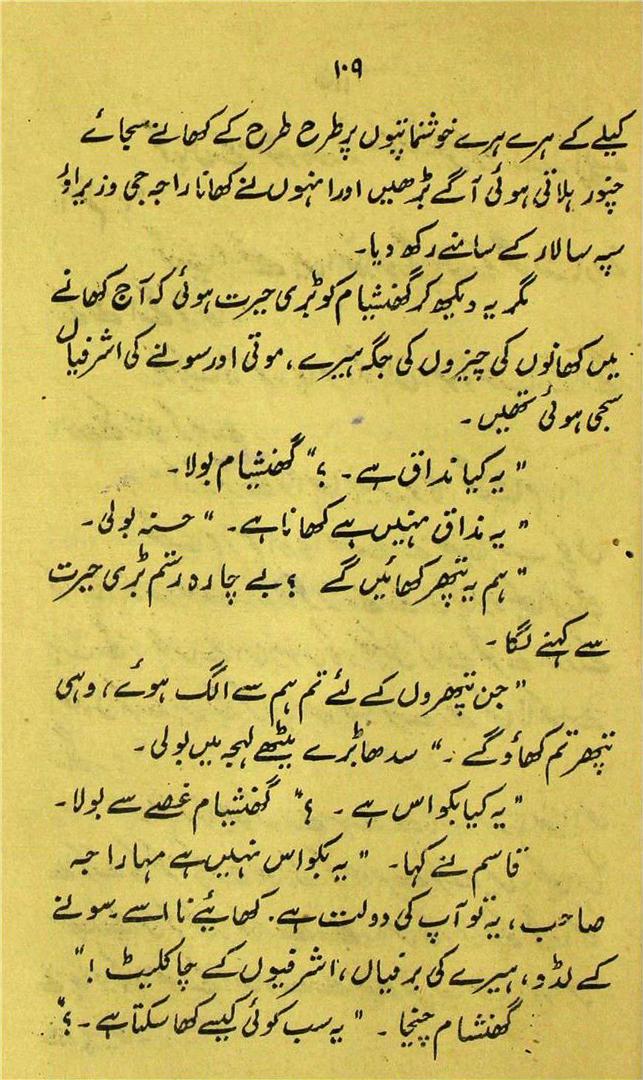 ۱۰۹
کیلے کے ہرے ہرے خوشنما پتوں پر طرح طرح کے کھانے سجائے
چنور ہلاتی ہوئی آگے بڑھیں اور انہوں نے کھانا راجہ جی وزیر اؤر
سپہ سالار کے سامنے رکھ دیا۔
مگر یہ دیکھ کر گھنشیام کو بڑی حیرت ہوئی کہ آج کھانے
میں کھانوں کی چیزوں کی جگہ ہیرے، موتی اور سونے کی اشرفیاں
سجی ہوئی تھیں۔
"یہ کیا مذاق ہے۔ ؟" گھنشیام بولا۔
"یہ مذاق نہیں ہے کھانا ہے۔" حسنہ بولی۔
"ہم یہ پتھر کھائیں گے ؟ بے چارہ رستم بڑی حیرت
سے کہنے لگا۔
"جن پتھروں کے لئے تم ہم سے الگ ہوئے، وہی
پتھر تم کھاؤ گے۔" سدھا بڑے میٹھے لہجہ میں بولی۔
"یہ کیا بکواس ہے۔ ؟" گھنشیام غصے سے بولا۔
قاسم نے کہا۔ "یہ بکواس نہیں ہے مہاراجہ
صاحب، یہ تو آپ کی دولت ہے۔ کھائیے نا اسے۔ سونے
کے لڈو، ہیرے کی برفیاں، اشرفیوں کے چاکلیٹ !"
گھنشام چیخا۔ "یہ سب کوئی کیسے کھا سکتا ہے۔ ؟"